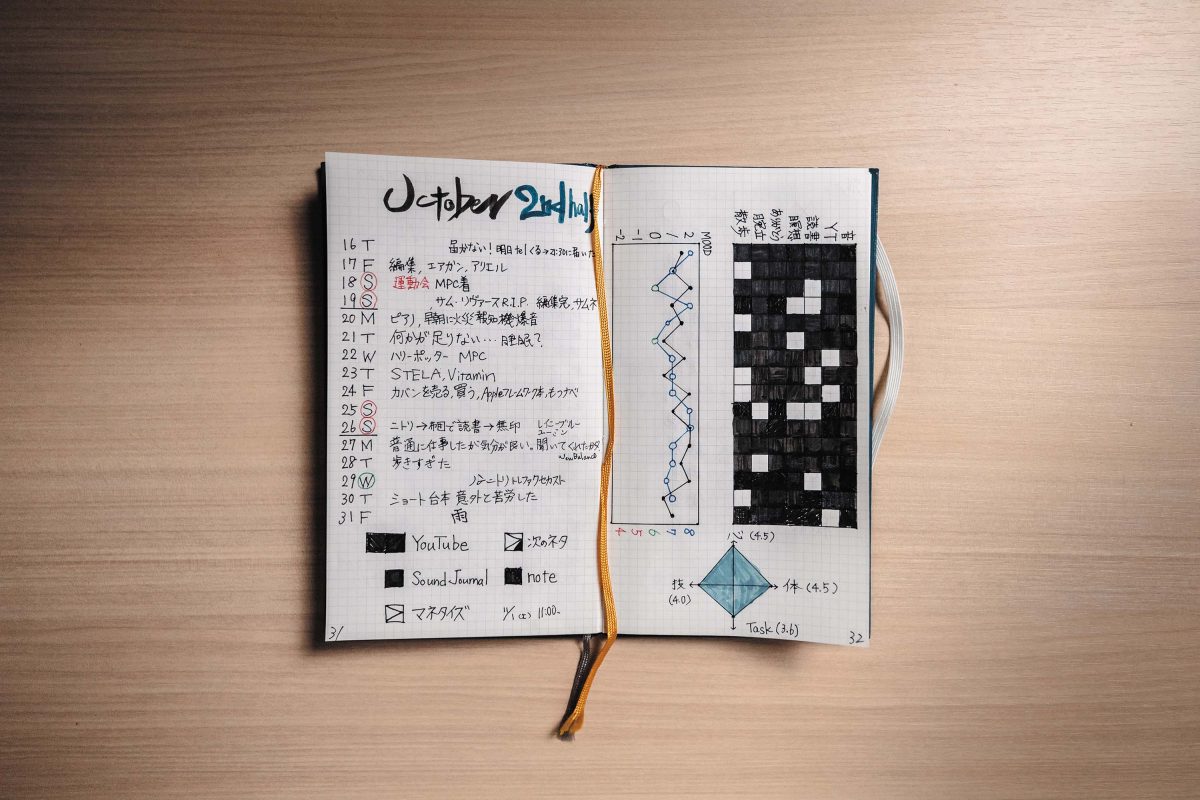 October 2nd half
16 T 届かない！明日telくる→21:30に着いた
17 F 編集, エアガン, アリエル
18 S 運動会 MPC着
19 S サム・リヴァース R.I.P. 編集完, サムネ
20 M ピアノ, 早朝に火災報知機爆音
21 T 何かが足りない… 睡眠？
22 W ハリーポッター MPC
23 T STELA, Vitamin
24 F カバンを売る, 買う, Appleフレームワーク本, もつナベ
25 S
26 S ニトリ→ で読書→無印
27 M 普通に仕事したが気分が良い。聞いてくれたから？
New Balance
28 T 歩きすぎた
29 W ニトリ トレファク セカスト
30 T ショート台本 意外と苦労した
31 F 雨
YouTube 次のネタ
Sound Journal note
マネタイズ 11/1 (土) 11:00~
31
音
YT
読書
瞑想
ありがとう
腕立
散歩
MOOD
2 1 0 -1 -2
8 7 6 5 4
心 (4.5)
技 (4.0)
体 (4.5)
Task (3.6)
32